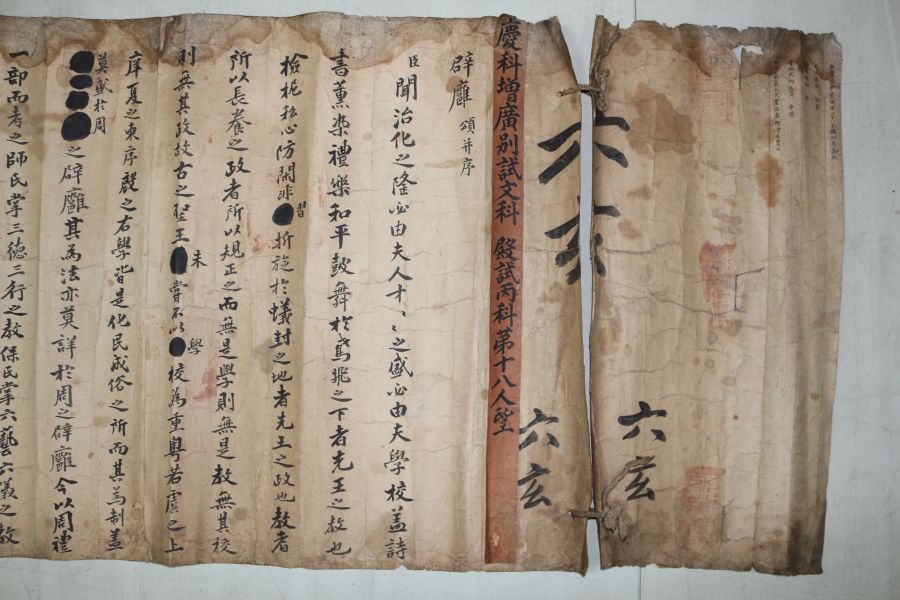 六玄
六玄
六玄
慶科增廣別試文科 殿試丙科第十八人望
辟廱 頌并序
臣聞治化之隆必由夫人才〻之盛必由夫學校盖詩
書薰染禮樂和平鼓舞於鳶飛之下者先王之敎也
檢柅私心防閑非習折旋於蟻封之地者先王之政也敎者
所以長養之政者所以規正之而無是學則無是敎無其校
則無其政故古之聖王未嘗不以學校為重粤若虞之上
庠夏之東序殷之右學皆是化民成俗之所而其為制盖
莫盛於周之辟廱其為法亦莫詳於周之辟廱今以周禮
一部而考之師氏掌三德三行之敎保氏掌六藝六儀之敎